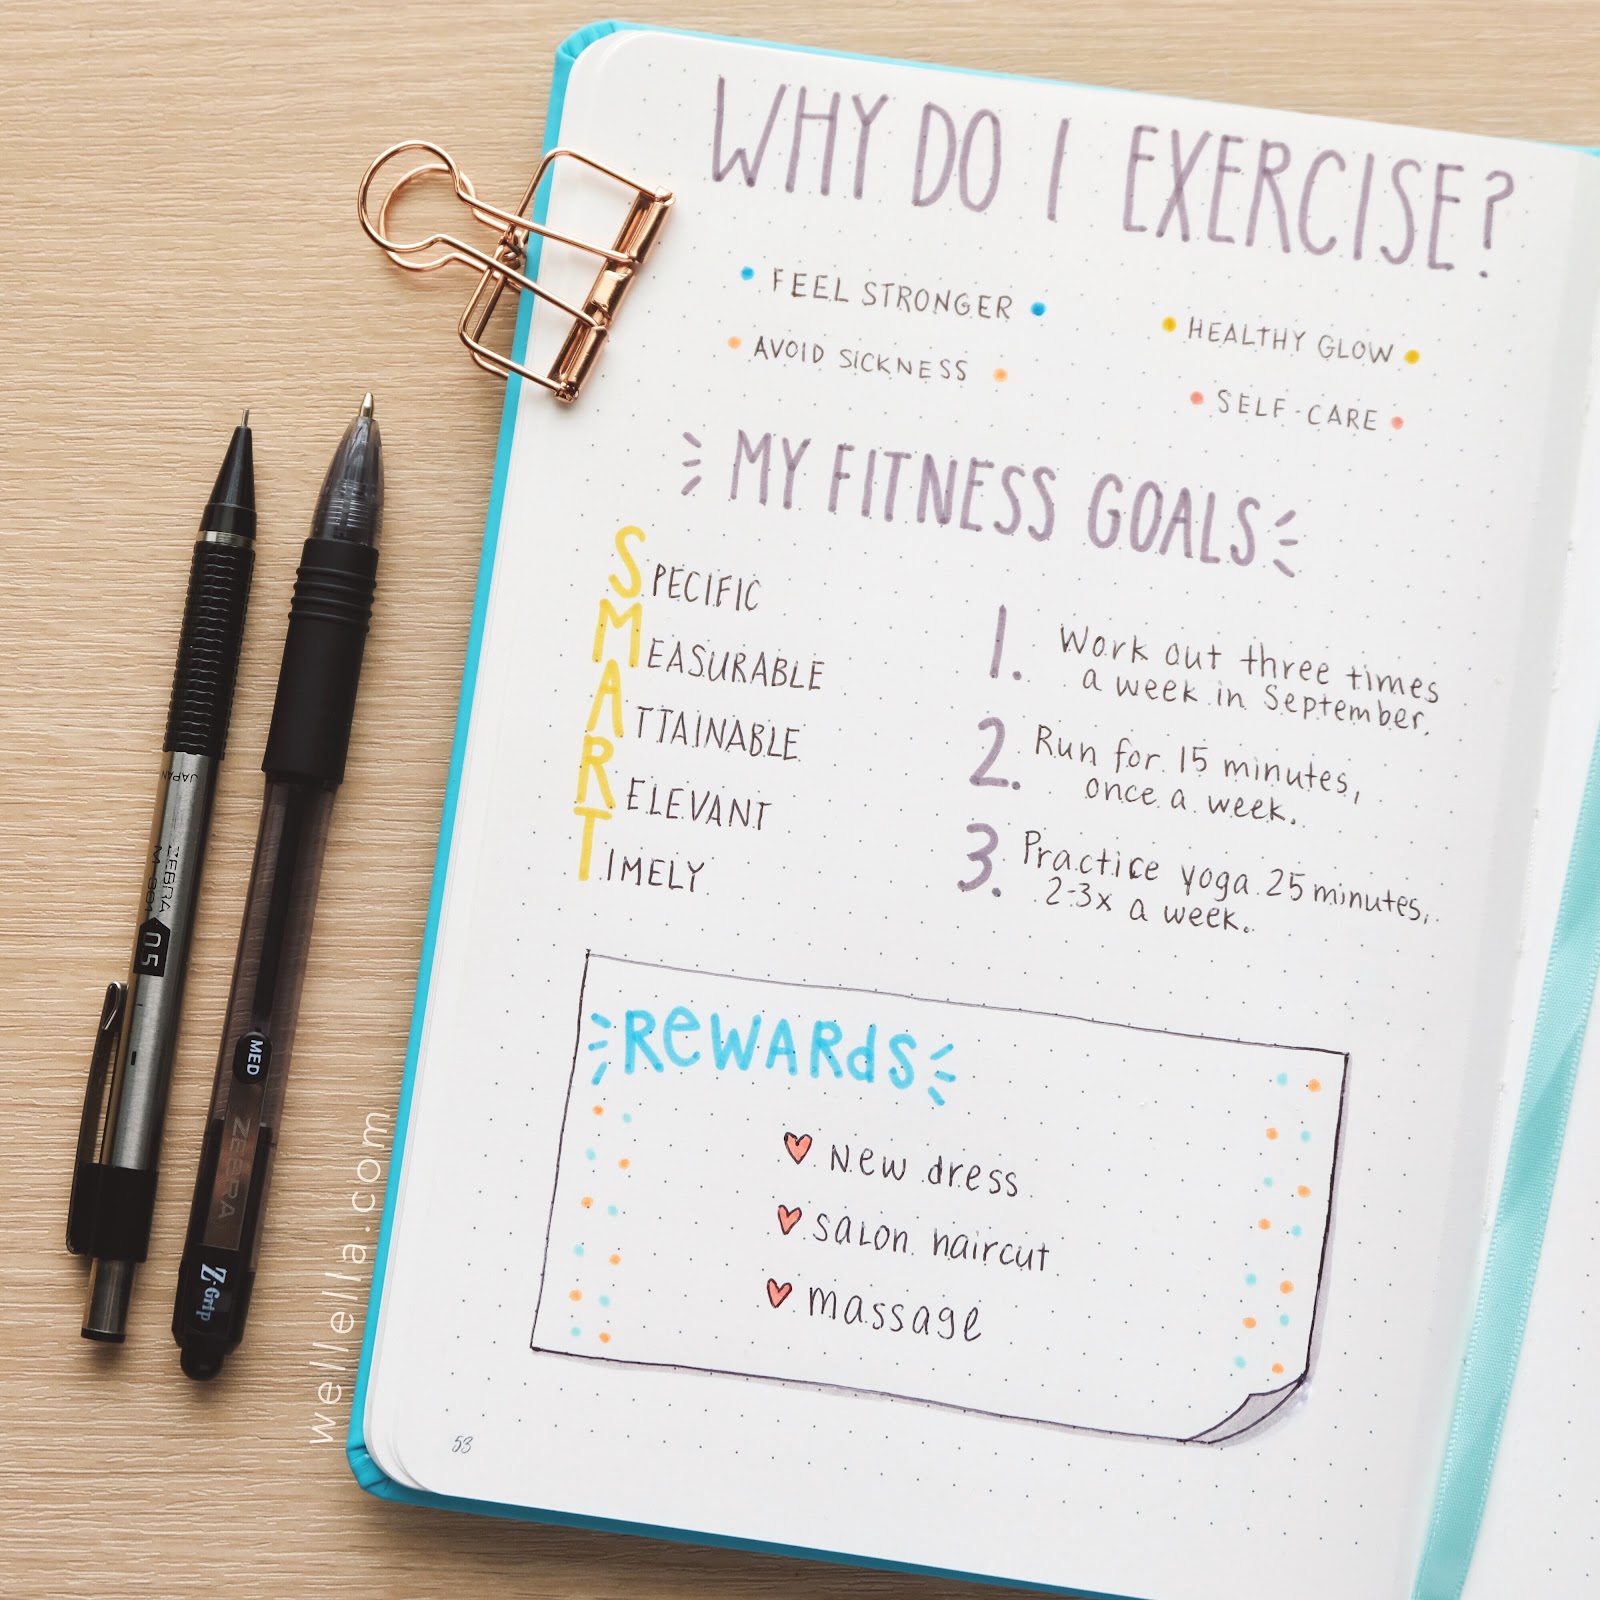 WHY DO I EXERCISE?
• FEEL STRONGER •
• HEALTHY GLOW •
• AVOID SICKNESS •
• SELF-CARE •
MY FITNESS GOALS
SPECIFIC
MEASURABLE
ATTAINABLE
RELEVANT
TIMELY
1. Work out three times
a week in September.
2. Run for 15 minutes,
once a week.
3. Practice yoga 25 minutes,
2-3x a week.
REWARDS
New dress
salon haircut
massage
53
JAPAN
ZEBRA M-301 0.5
MED
ZEBRA
Z-Grip
wellella.com